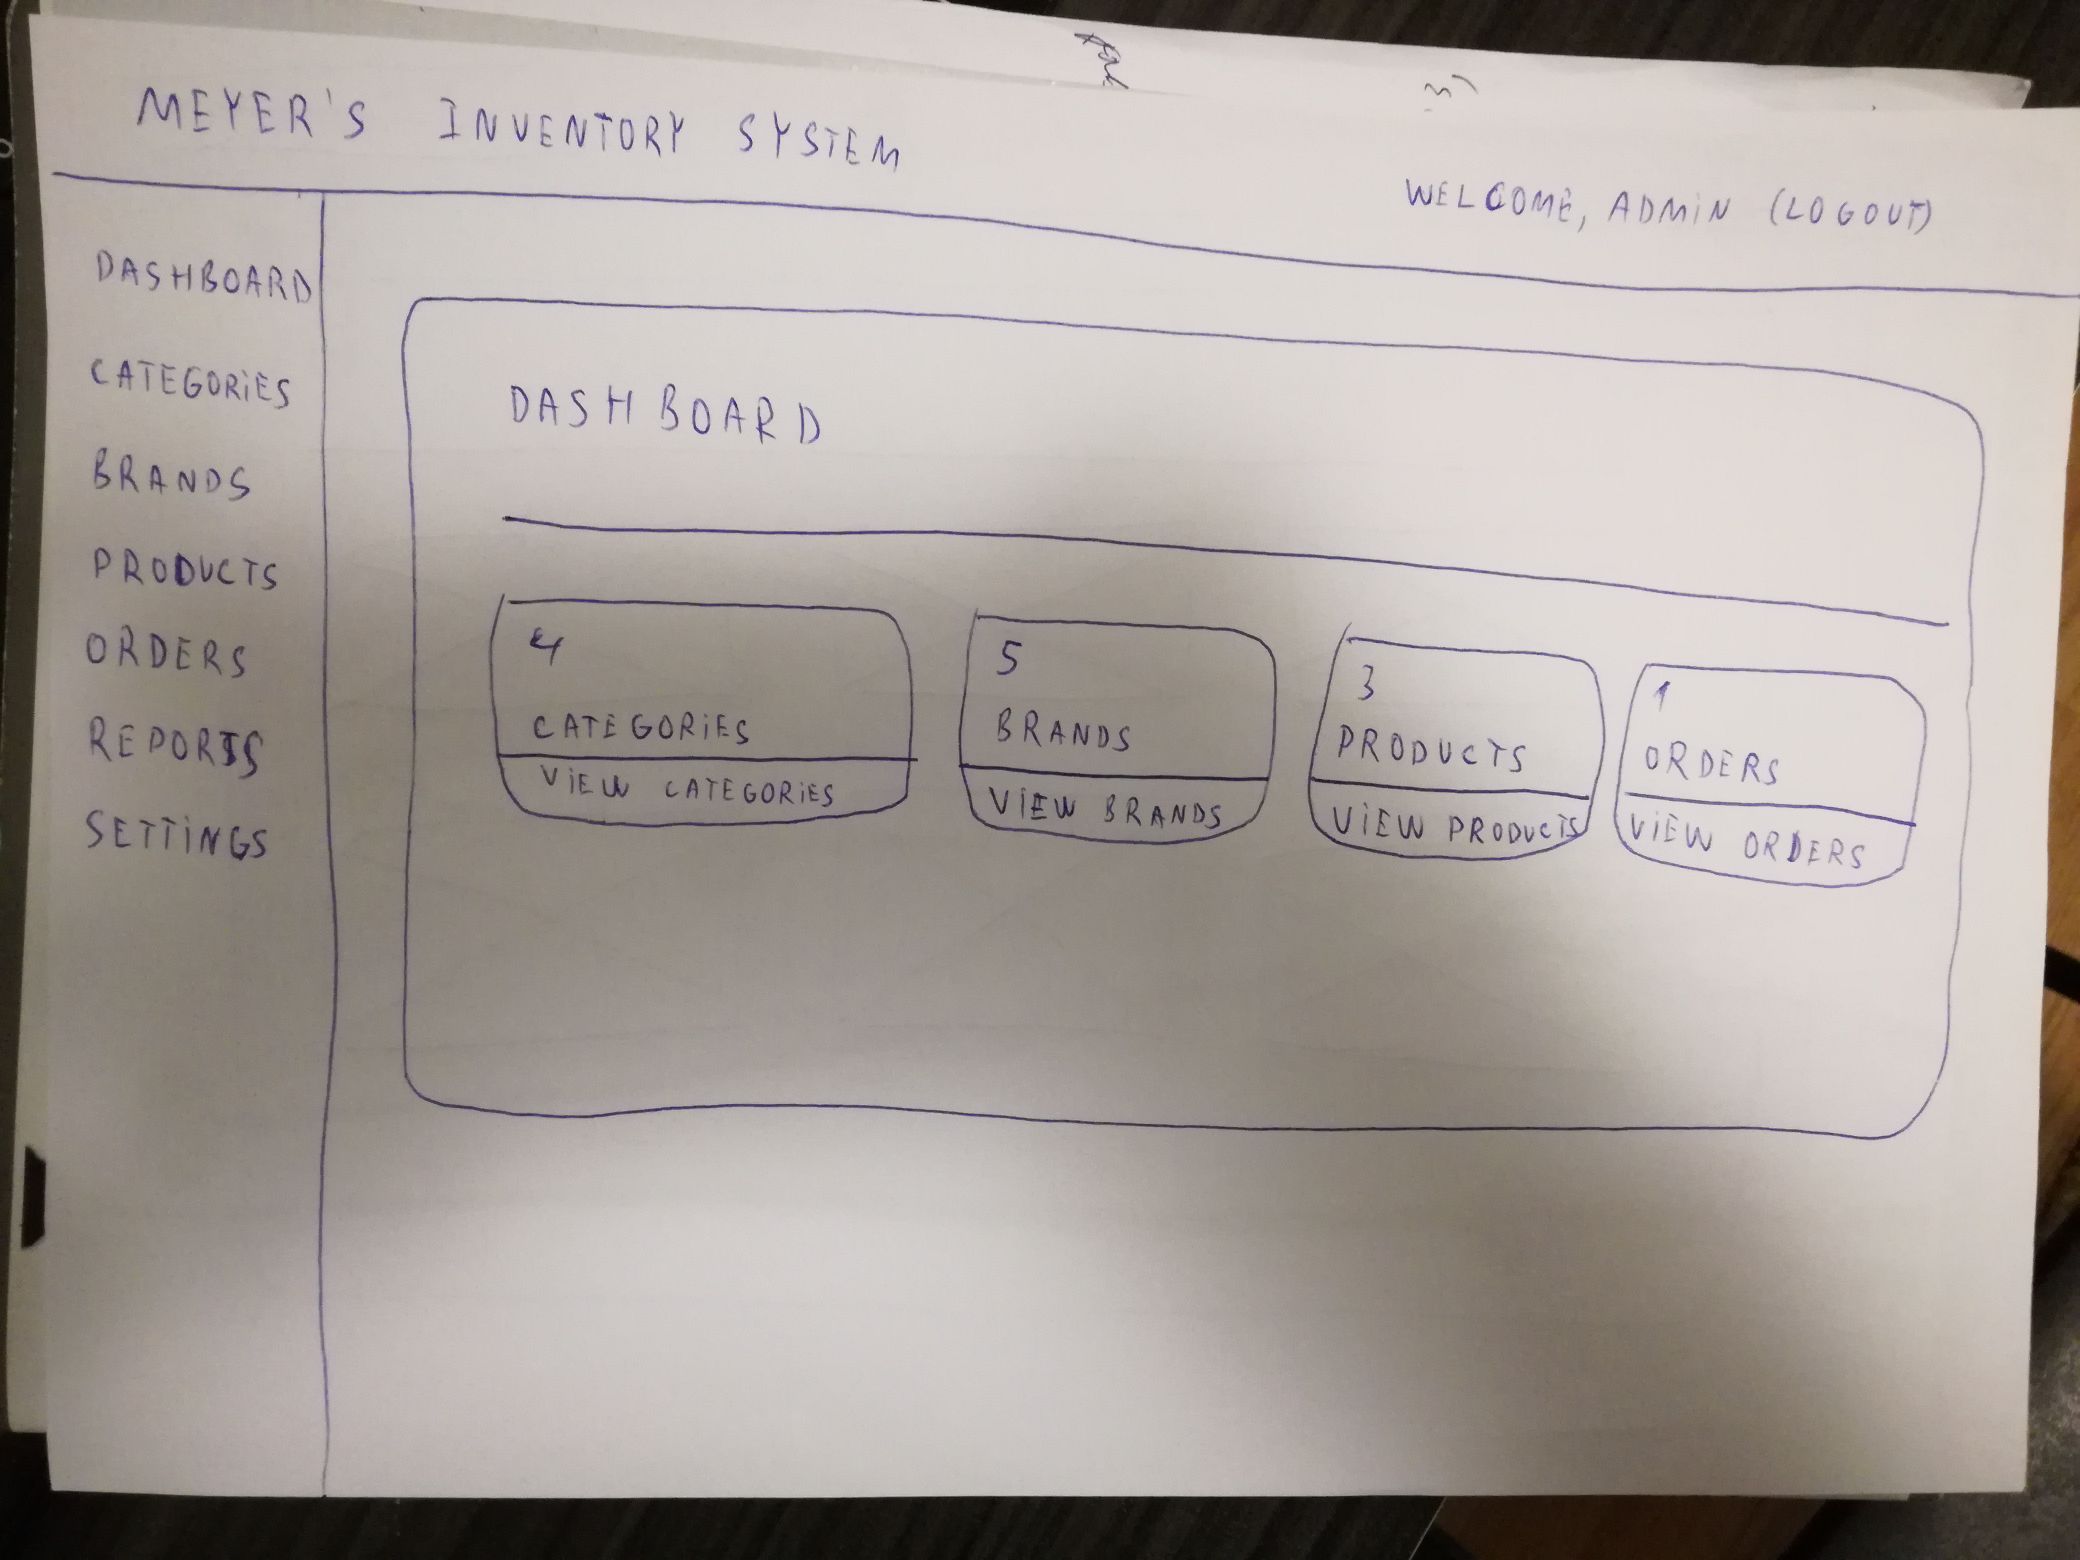 MEYER'S INVENTORY SYSTEM
WELCOME, ADMIN (LOGOUT)
DASHBOARD
CATEGORIES
BRANDS
PRODUCTS
ORDERS
REPORTS
SETTINGS
DASHBOARD
4
CATEGORIES
VIEW CATEGORIES
5
BRANDS
VIEW BRANDS
3
PRODUCTS
VIEW PRODUCTS
1
ORDERS
VIEW ORDERS